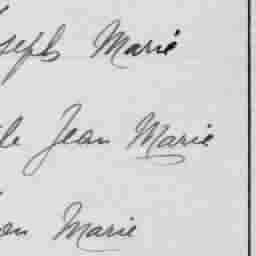 oseph Marie
le Jean Marie
on Marie